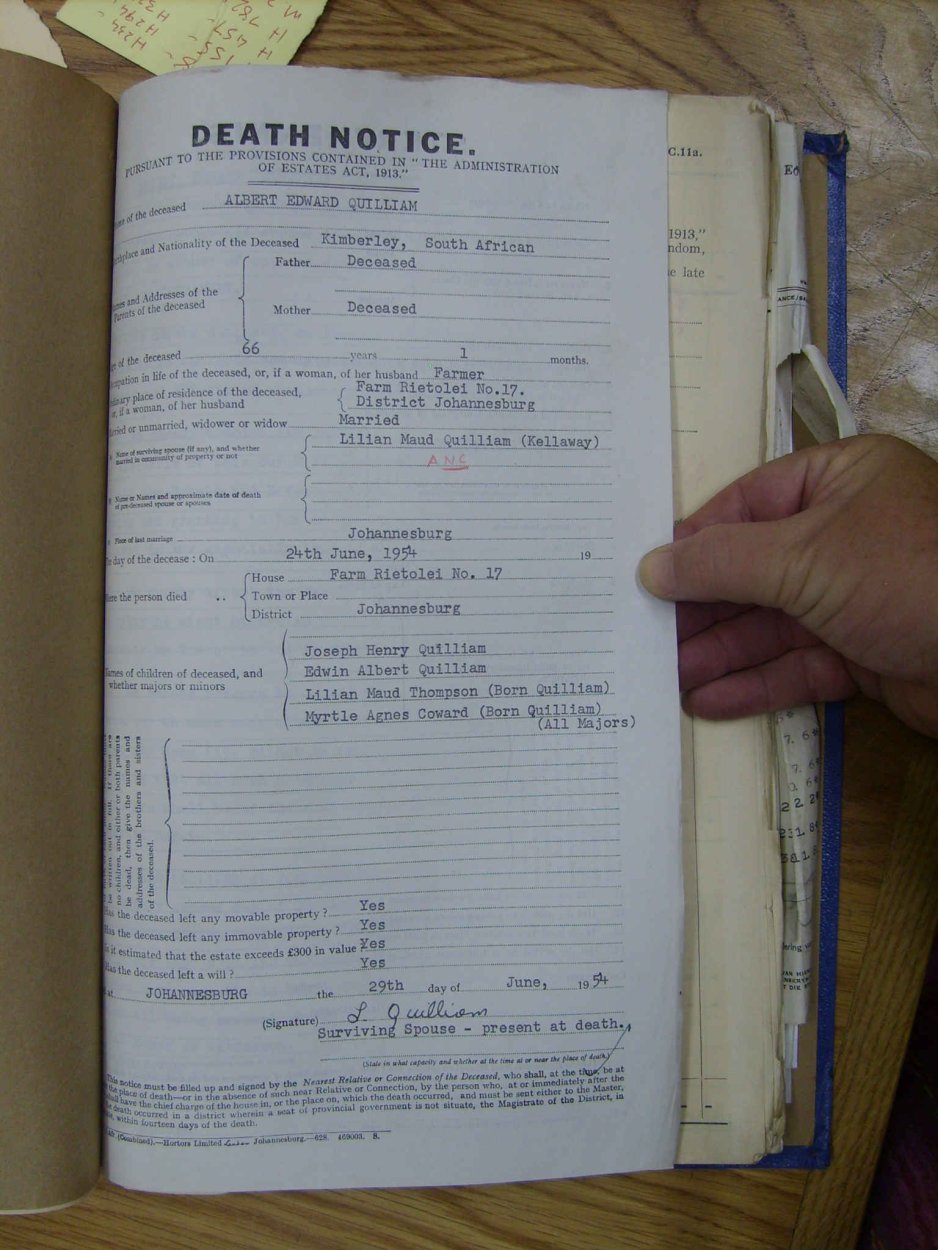 H294
H234
457
782
DEATH NOTICE.
PURSUANT TO THE PROVISIONS CONTAINED IN "THE ADMINISTRATION
OF ESTATES ACT, 1913."
of the deceased ALBERT EDWARD QUILLIAM
and Nationality of the Deceased Kimberley, South African
Father Deceased
and Addresses of the
Parents of the deceased
Mother Deceased
of the deceased 66 years 1 months.
in life of the deceased, or, if a woman, of her husband Farmer
place of residence of the deceased, Farm Rietolei No.17.
or, if a woman, of her husband District Johannesburg
or unmarried, widower or widow Married
Name of surviving spouse (if any), and whether Lilian Maud Quilliam (Kellaway)
married in community of property or not
A N C
Name or Names and approximate date of death
of pre-deceased spouse or spouses
Place of last marriage Johannesburg
day of the decease : On 24th June, 1954 19
House Farm Rietolei No. 17
the person died .. Town or Place
District Johannesburg
Joseph Henry Quilliam
of children of deceased, and Edwin Albert Quilliam
whether majors or minors
Lilian Maud Thompson (Born Quilliam)
Myrtle Agnes Coward (Born Quilliam)
(All Majors)
no children, and either or both parents
be dead, then give the names and
addresses of the brothers and sisters
of the deceased.
the deceased left any movable property ? Yes
the deceased left any immovable property ? Yes
it estimated that the estate exceeds £300 in value Yes
the deceased left a will ? Yes
at JOHANNESBURG the 29th day of June, 1954
(Signature) L Quilliam
Surviving Spouse - present at death.
(State in what capacity and whether at the time at or near the place of death)
This notice must be filled up and signed by the Nearest Relative or Connection of the Deceased, who shall, at the time, be at
the place of death—or in the absence of such near Relative or Connection, by the person who, at or immediately after the
shall have the chief charge of the house in, or the place on, which the death occurred, and must be sent either to the Master,
death occurred in a district wherein a seat of provincial government is not situate, the Magistrate of the District, in
within fourteen days of the death.
(Combined).—Hortors Limited Johannesburg.—628. 469003. 8.
C.11a.
1913,"
late